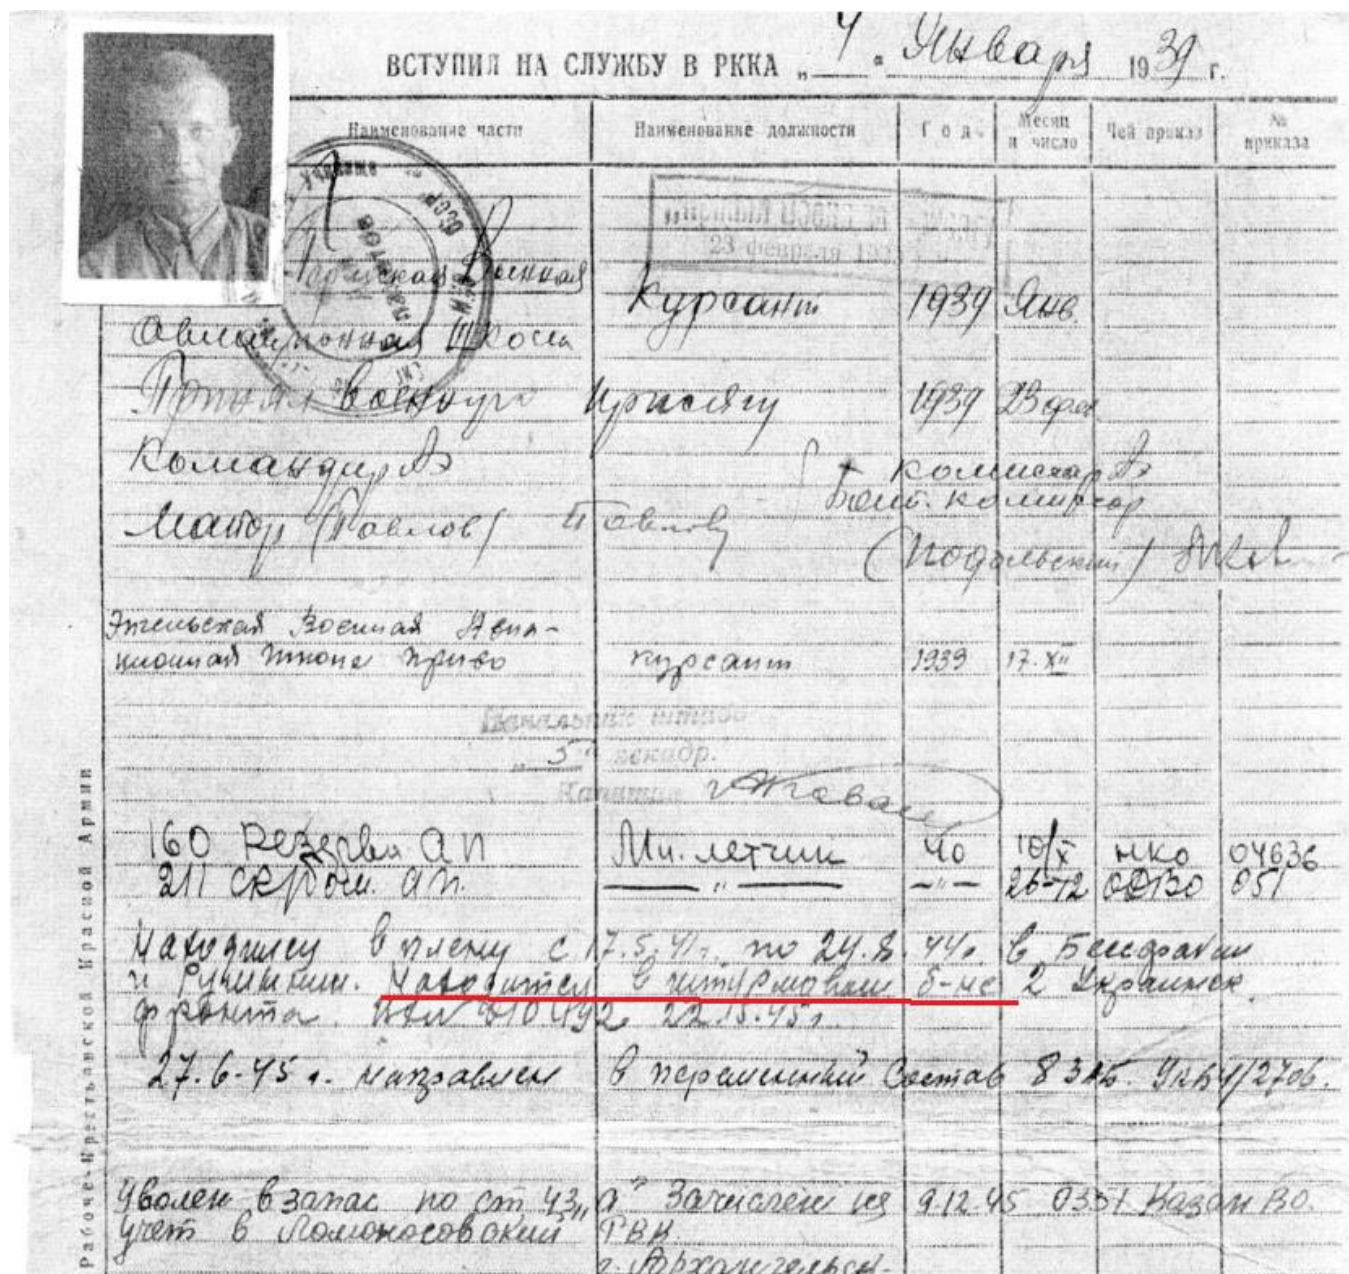 ВСТУПИЛ НА СЛУЖБУ В РККА „4“ Января 1939 г.
Наименование части Наименование должности Год Месяц и число Чей приказ № приказа
23 февраля 193
Пермская Военная
Авиационная Школа Курсант 1939 Янв.
Принял военную присягу 1939 23 фев
Командир АЭ комиссар АЭ
Бат. комиссар
Майор (Павлов) (Подольский)
Энгельская Военная Авиа-
ционная школа Приво курсант 1939 17.XII
Начальник штаба
„5“ эскадр.
Капитан
160 Резервн АП Мл. летчик 40 10/X НКО 04636
211 скрбом. ап. —— „ —— —„— 26-12 ОдВО 051
Находился в плену с 17.5.41г. по 24.8.44г. в Бессарабии
и Румынии. Находится в штурмовом б-не 2 Украинск
фронта. 22.
27.6-45 г. направлен в переменный Состав 8
Уволен в запас по ст 43 „а“ Зачислен на 9.12.45 0351 Казан ВО.
учет в Ломоносовский РВК
г. Архангельск
Рабоче-Крестьянской Красной Армии